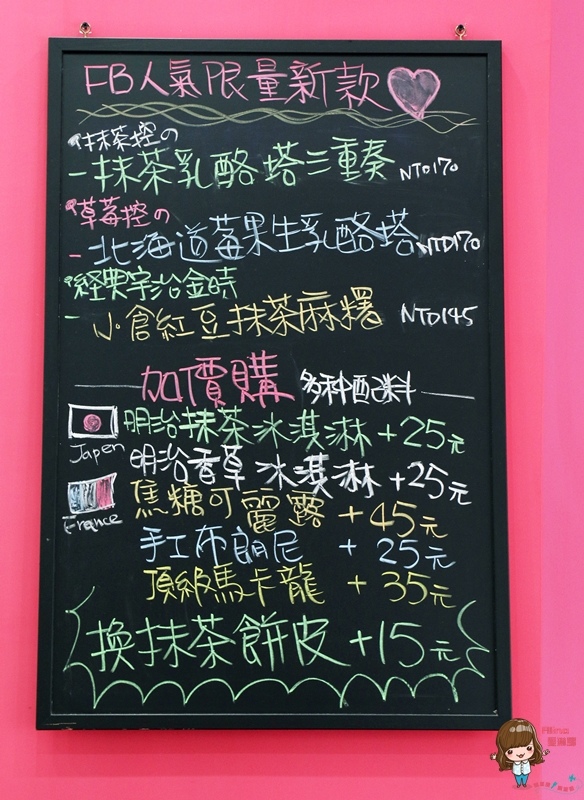 FB人氣限量新款
抹茶控の
-抹茶乳酪塔三重奏 NTD170
草莓控の
-北海道莓果生乳酪塔 NTD170
経典宇治金時
-小倉紅豆抹茶麻糬 NTD145
加價購 多种配料
明治抹茶冰淇淋+25元
Japen
明治香草冰淇淋+25元
France
焦糖可麗露+45元
手工布朗尼+25元
頂級馬卡龍+35元
換抹茶餅皮+15元